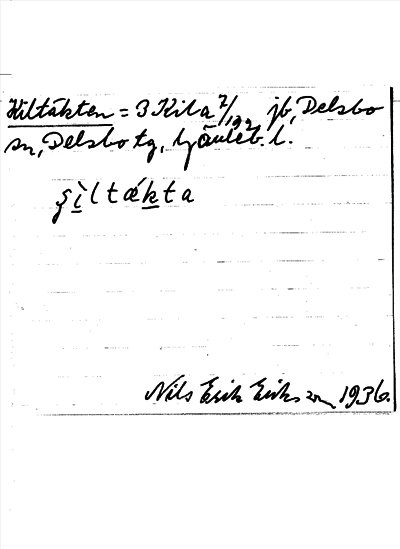 Kiltäkten = 3 Kila 7/192 jb, Delsbo
sn, Delsbo tg, Gävleb. l.
şìltǽkta
Nils Erik Erikson 1936.